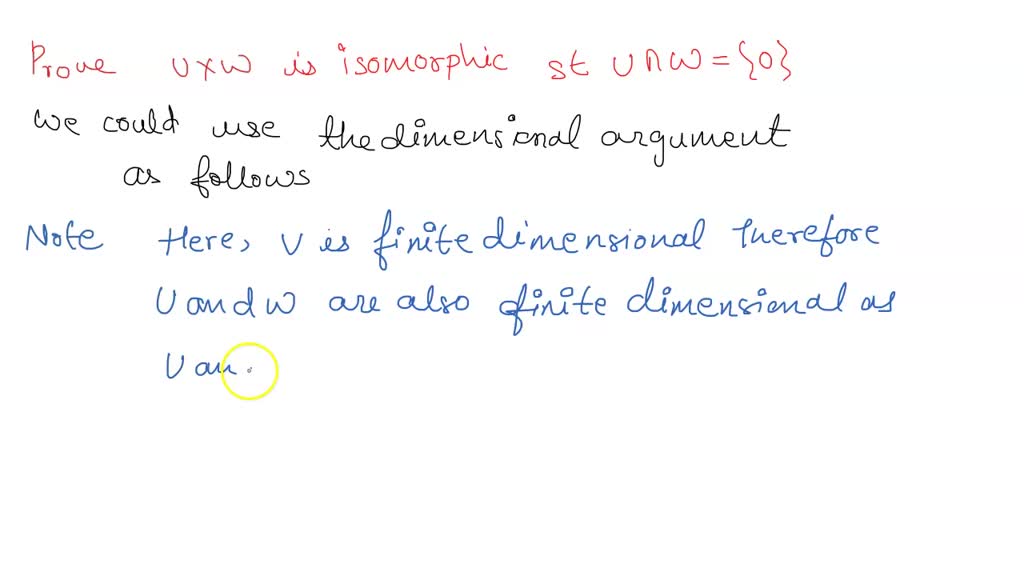 Prove U×W is isomorphic st U∩W={0}
we could use the dimensional argument
as follows
Note Here, V is finite dimensional therefore
U and W are also finite dimensional as
U an